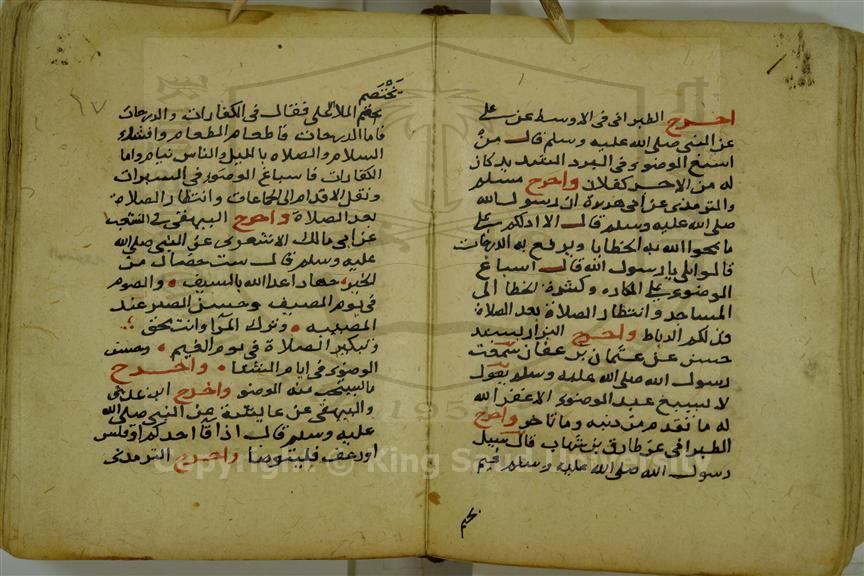 اخرج الطبراني في الاوسط عن علي
عن النبي صلى الله عليه وسلم قال من
اسبغ الوضوء في البرد الشديد كان
له من الاجر كفلان واخرج مسلم
والترمذي عن ابي هريرة ان رسول الله
صلى الله عليه وسلم قال الا ادلكم على
ما يمحوا الله به الخطايا ويرفع به الدرجات
قالوا بلى يا رسول الله قال اسباغ
الوضوء على المكاره وكثرة الخطا الى
المساجد وانتظار الصلاة بعد الصلاة
فذلكم الرباط واخرج البزار بسند
حسن عن عثمان بن عفان سمعت
رسول الله صلى الله عليه وسلم يقول
لا يسبغ عبد الوضوء الا غفر الله
له ما تقدم من ذنبه وما تاخر واخرج
الطبراني عن طارق بن شهاب قال سيل
رسول الله صلى الله عليه وسلم فيم
يختصم
يختصم الملا الاعلى فقال في الكفارات والدرجات
فاما الدرجات فاطعام الطعام وافشاء
السلام والصلاة بالليل والناس نيام واما
الكفارات فاسباغ الوضوء في السبرات
ونقل الاقدام الى الجماعات وانتظار الصلاة
بعد الصلاة واخرج البيهقي في الشعب
عن ابي مالك الاشعري عن النبي صلى الله
عليه وسلم قال ست خصال من
الخير جهاد اعدا الله بالسيف والصوم
في يوم الصيف وحسن الصبر عند
المصيبه وترك المرا وانت محق
وتبكير الصلاة في يوم الغيم وحسن
الوضوء في ايام الشتا واخرج
منه الوضو واخرج ابن عدي
والبيهقي عن عايشة عن النبي صلى الله
عليه وسلم قال اذا قا احدكم او قلس
او رعف فليتوضا واخرج الترمذي
Copyright © King Saud University
1957